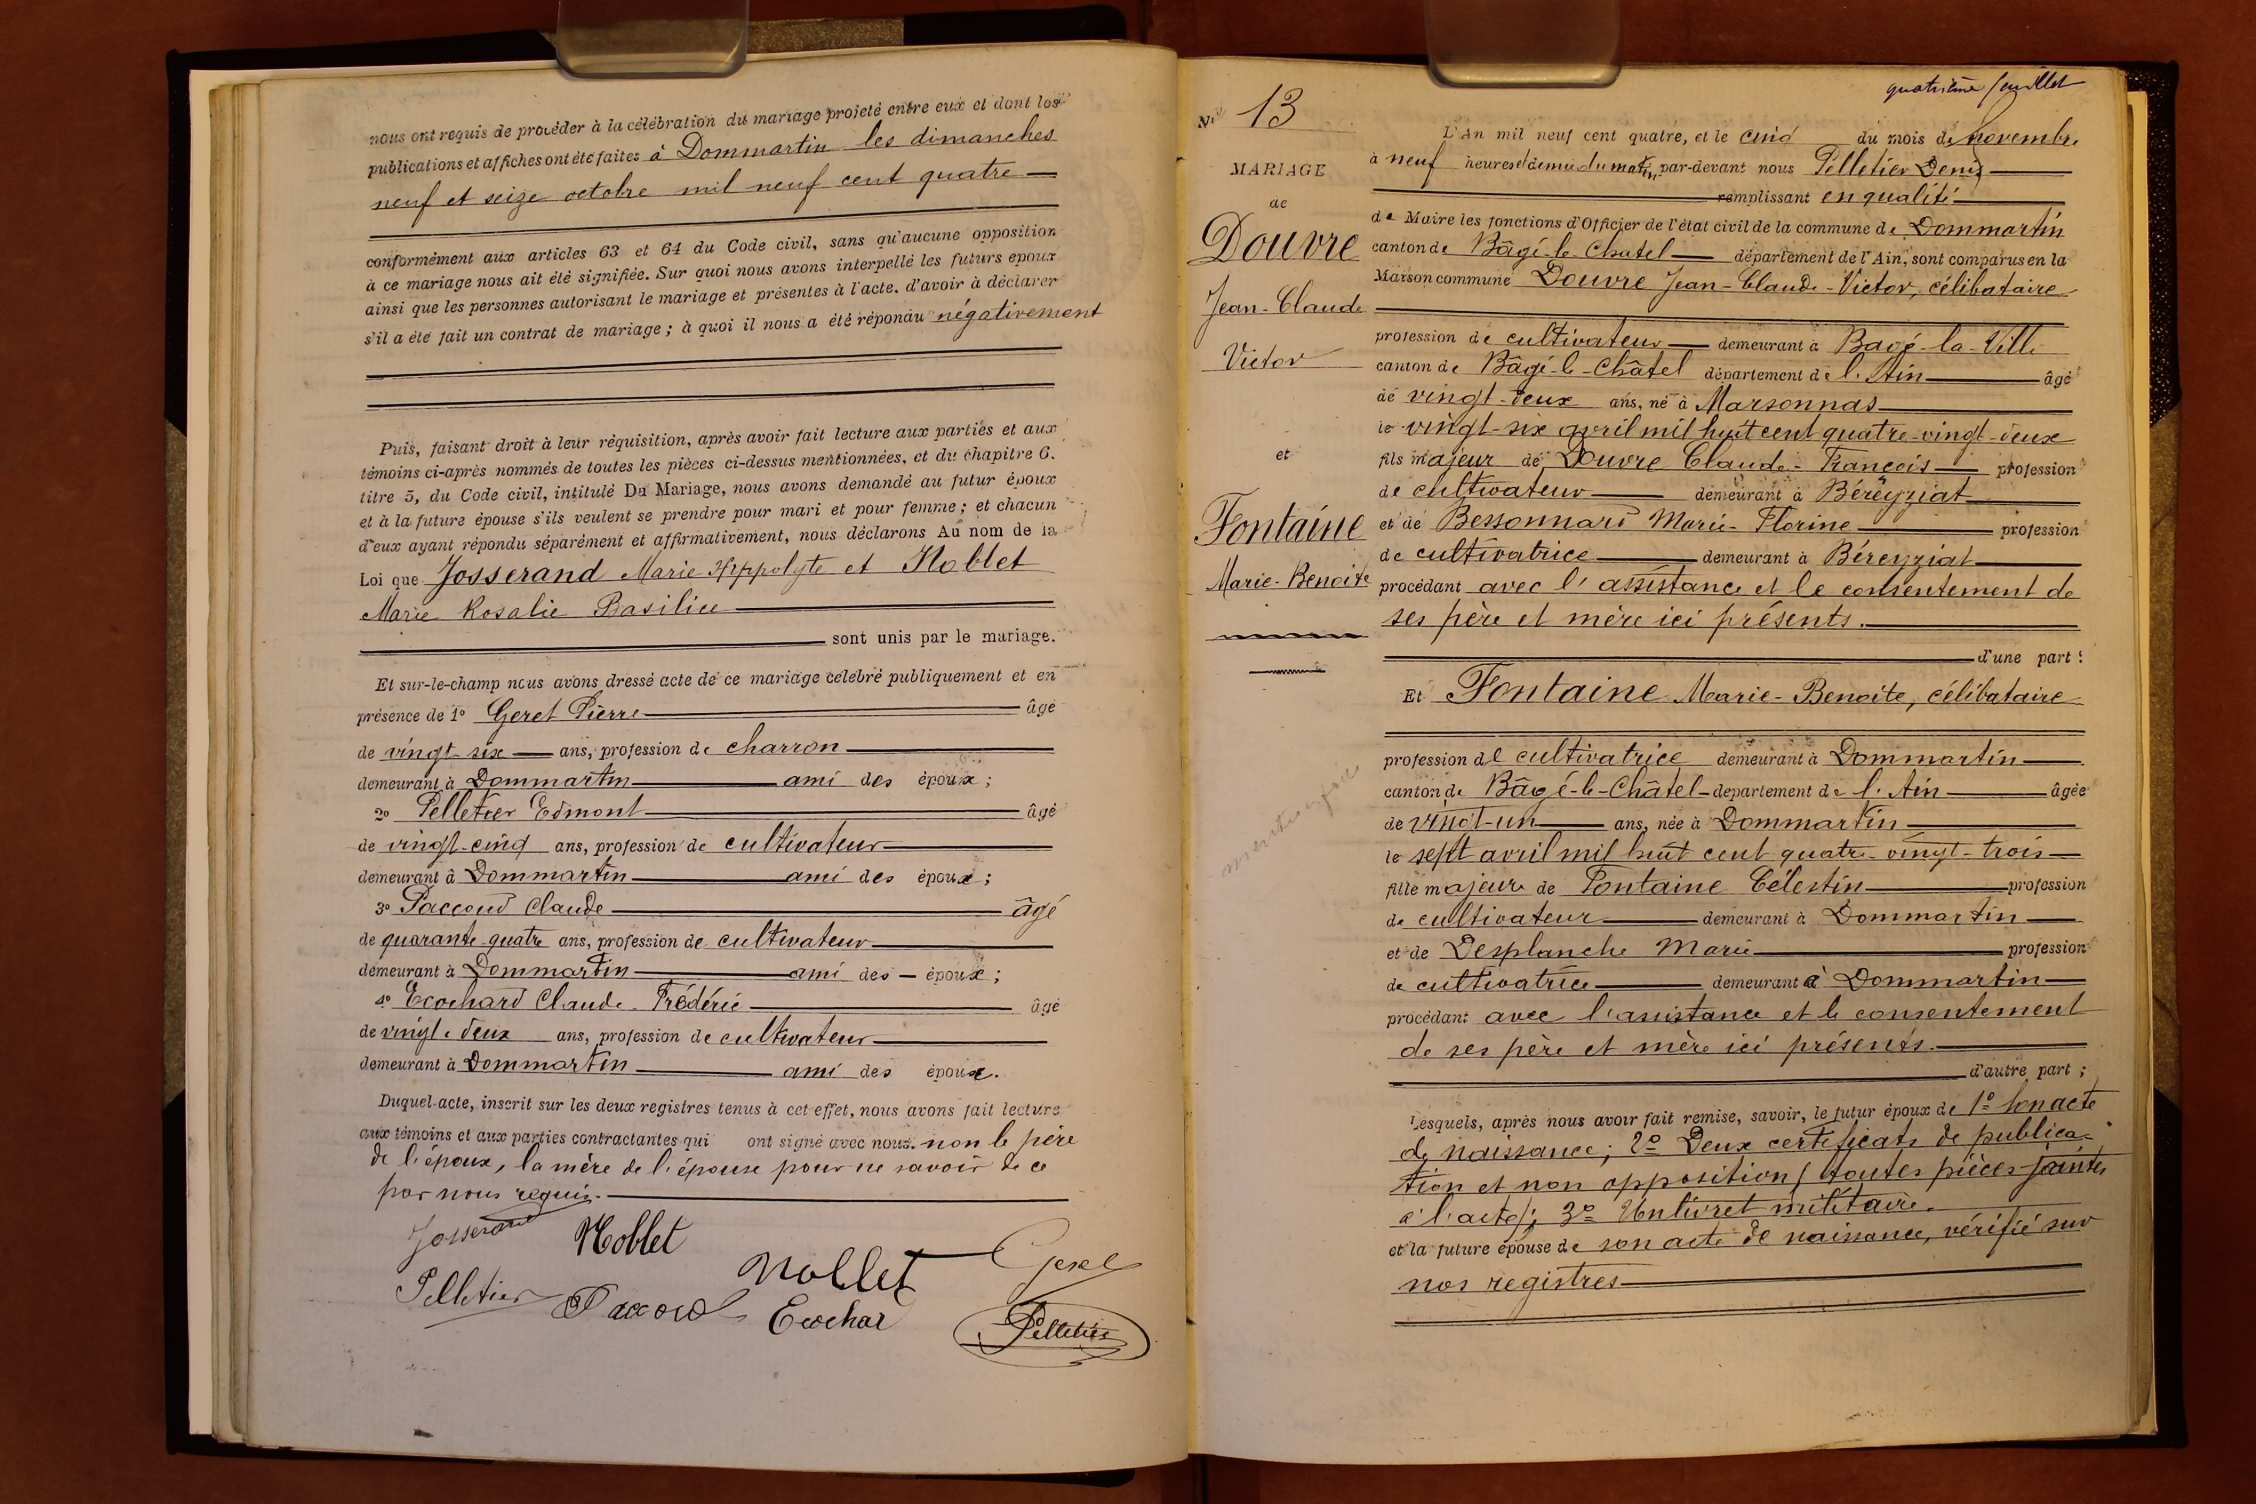 nous ont requis de procéder à la célébration du mariage projeté entre eux et dont les
publications et affiches ont été faites à Dommartin les dimanches
neuf et seize octobre mil neuf cent quatre
conformément aux articles 63 et 64 du Code civil, sans qu'aucune opposition
à ce mariage nous ait été signifiée. Sur quoi nous avons interpellé les futurs époux
ainsi que les personnes autorisant le mariage et présentes à l'acte, d'avoir à déclarer
s'il a été fait un contrat de mariage ; à quoi il nous a été répondu négativement
Puis, faisant droit à leur réquisition, après avoir fait lecture aux parties et aux
témoins ci-après nommés de toutes les pièces ci-dessus mentionnées, et du chapitre 6,
titre 5, du Code civil, intitulé Du Mariage, nous avons demandé au futur époux
et à la future épouse s'ils veulent se prendre pour mari et pour femme ; et chacun
d'eux ayant répondu séparément et affirmativement, nous déclarons Au nom de la
Loi que Josserand Marie Hippolyte et Noblet
Marie Rosalie Basilice
sont unis par le mariage.
Et sur-le-champ nous avons dressé acte de ce mariage célébré publiquement et en
présence de 1º Geret Pierre âgé
de vingt-six ans, profession de charron
demeurant à Dommartin ami des époux ;
2º Pelletier Edmont âgé
de vingt-cinq ans, profession de cultivateur
demeurant à Dommartin ami des époux ;
3º Paccoud Claude âgé
de quarante-quatre ans, profession de cultivateur
demeurant à Dommartin ami des époux ;
4º Ecochard Claude-Frédéric âgé
de vingt-deux ans, profession de cultivateur
demeurant à Dommartin ami des époux.
Duquel acte, inscrit sur les deux registres tenus à cet effet, nous avons fait lecture
aux témoins et aux parties contractantes qui ont signé avec nous. non le père
de l'époux, la mère de l'épouse pour ne savoir de ce
par nous requis.
Josserand Noblet
Noblet Geret
Pelletier Paccoud Ecochar
Pelletier
quatrième feuillet
Nº 13
MARIAGE
de
Douvre
Jean-Claude
Victor
et
Fontaine
Marie-Benoite
L'An mil neuf cent quatre, et le cinq du mois de novembre
à neuf heures et demie du matin par-devant nous Pelletier Denis
remplissant en qualité
de Maire les fonctions d'Officier de l'état civil de la commune de Dommartin
canton de Bâgé-le-Chatel département de l'Ain, sont comparus en la
Maison commune Douvre Jean-Claude-Victor, célibataire
profession de cultivateur demeurant à Bagé-la-Ville
canton de Bâgé-le-Châtel département de l'Ain âgé
de vingt-deux ans, né à Marsonnas
le vingt-six avril mil huit cent quatre-vingt-deux
fils majeur de Douvre Claude-François profession
de cultivateur demeurant à Béréyziat
et de Bessonnard Marie-Florine profession
de cultivatrice demeurant à Béreyziat
procédant avec l'assistance et le consentement de
ses père et mère ici présents.
d'une part ;
Et Fontaine Marie-Benoite, célibataire
profession de cultivatrice demeurant à Dommartin
canton de Bâgé-le-Châtel département de l'Ain âgée
de vingt-un ans, née à Dommartin
le sept avril mil huit cent quatre-vingt-trois
fille majeure de Fontaine Célestin profession
de cultivateur demeurant à Dommartin
et de Desplanche Marie profession
de cultivatrice demeurant à Dommartin
procédant avec l'assistance et le consentement
de ses père et mère ici présents.
d'autre part ;
Lesquels, après nous avoir fait remise, savoir, le futur époux de 1º Son acte
de naissance ; 2º Deux certificats de publica-
tion et non opposition (toutes pièces jointes
à l'acte) ; 3º Un livret militaire.
et la future épouse de son acte de naissance, vérifié sur
nos registres